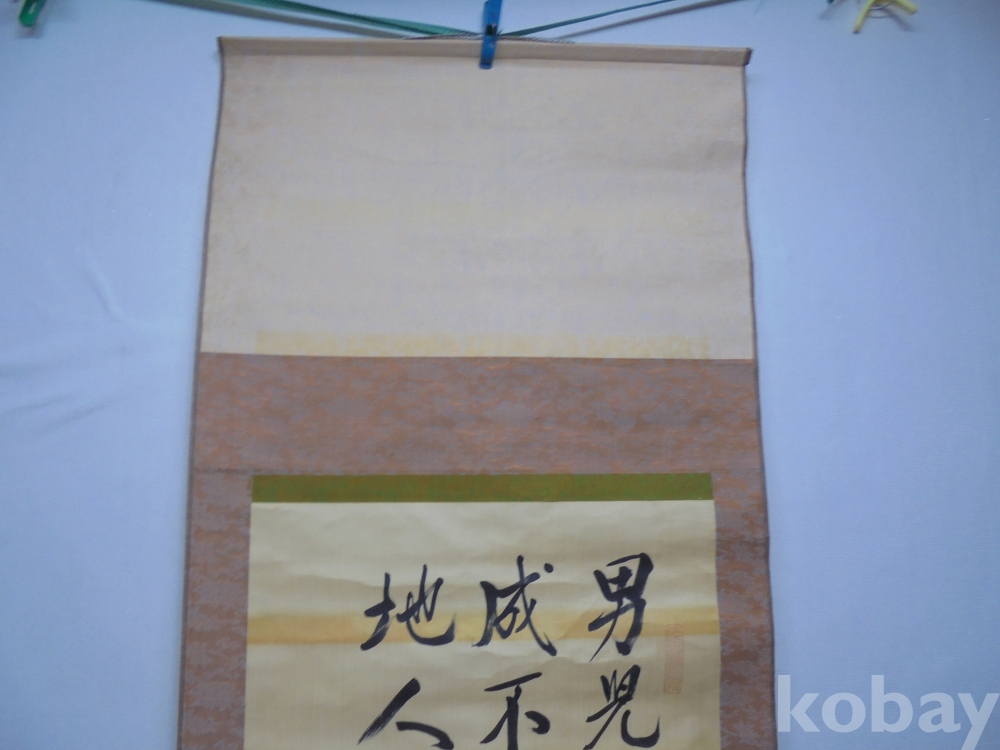 男児
成不
地人
kobay